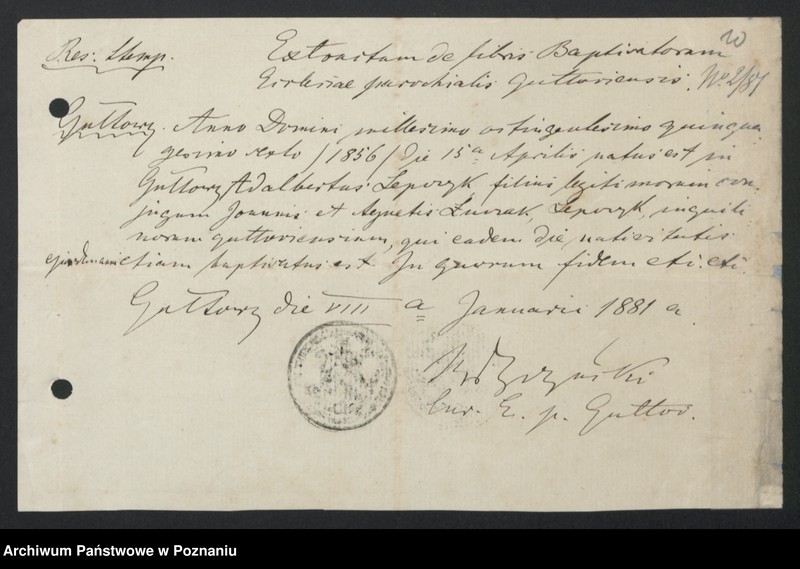 10
Res: Stemp.
Extractum de libris Baptisatorum
Ecclesiae parochialis Guttoviensis. No 2/81
Guttowy. Anno Domini millesimo octingentesimo quinqua
gesimo sexto / 1856 / die 15a Aprilis natus est in
Guttowy Adalbertus Lepczyk filius legitimorum con-
jugum Joannis et Agnetis Lepczyk, inquili
norum guttoviensium, qui eadem die nativitatis
ejusdem etiam baptisatus est. In quorum fidem etc. etc.
Guttowy die VIII a Januarii 1881 a
Cur. E. p. Guttov.
Archiwum Państwowe w Poznaniu